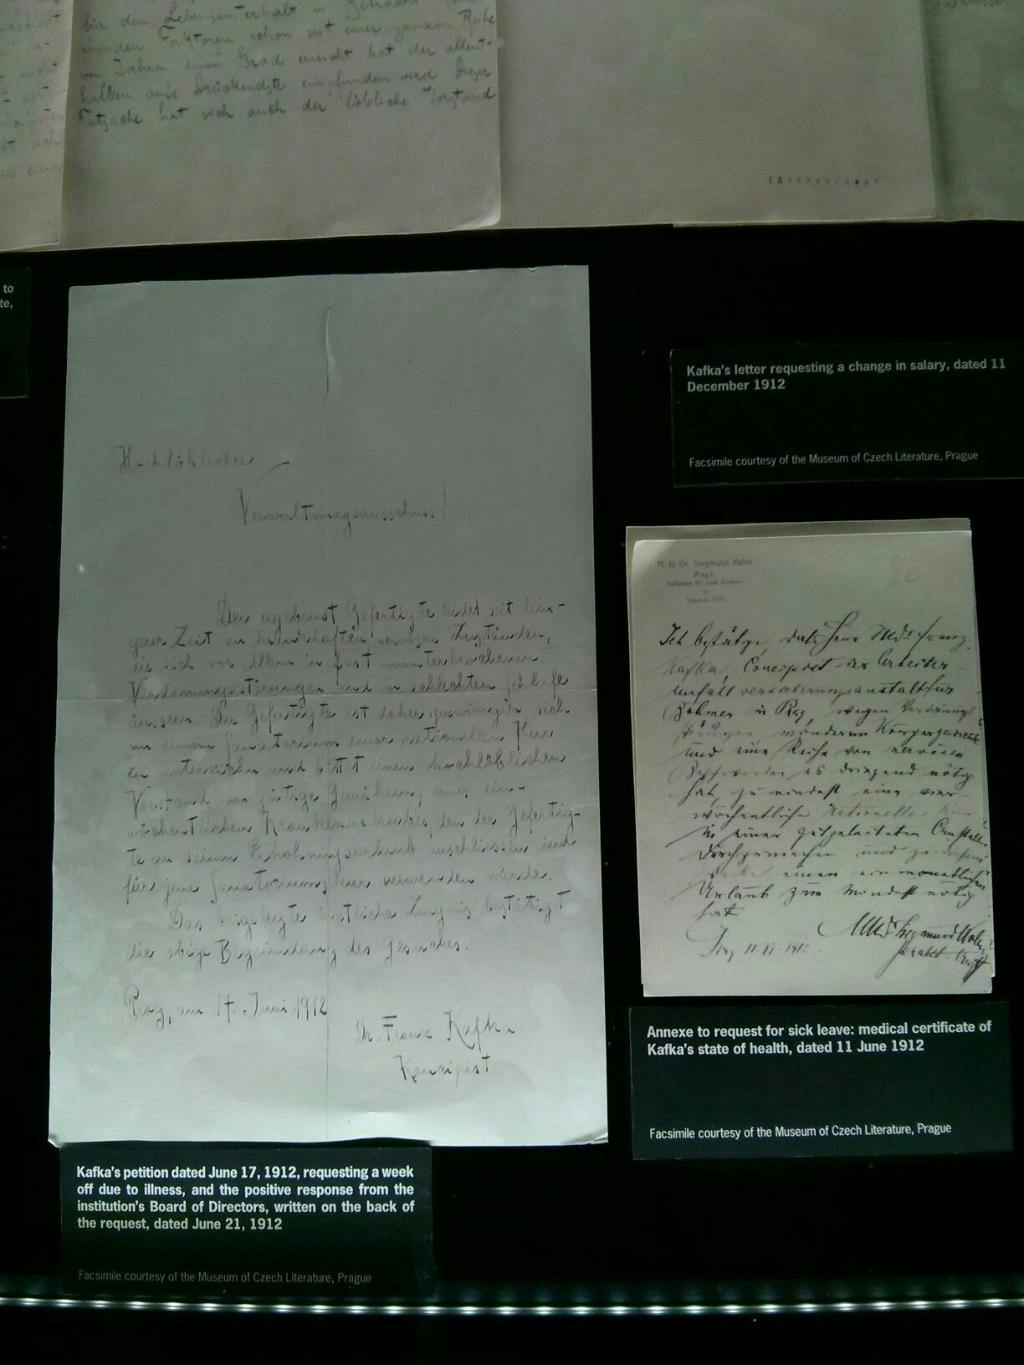 für den Lebensunterhalt in Betracht
menden Faktoren schon seit einer ganzen Reihe
von Jahren einen Grad erreicht hat der allent-
halben aufs Drückendste empfunden wird. Dieser
Tatsache hat sich auch der löbliche Vorstand
to
te,
Kafka's letter requesting a change in salary, dated 11
December 1912
Facsimile courtesy of the Museum of Czech Literature, Prague
Hochlöblicher
Verwaltungsausschuss!
Der ergebenst Gefertigte leidet seit län-
gerer Zeit an krankhaften nervösen Zuständen,
die sich vor allem in fast ununterbrochenen
Verdauungsstörungen und in schlechtem Schlafe
äussern. Der Gefertigte ist daher gezwungen sich
in einem Sanatorium einer rationellen Kur
zu unterziehn und bittet einen hochlöblichen
Vorstand um gütige Gewährung eines ein-
wöchentlichen Krankenurlaubs, den der Gefertig-
te an seinen Erholungsurlaub anschliessen und
für jene Sanatoriumskur verwenden würde.
Das beigelegte ärztliche Zeugnis bestätigt
die obige Begründung des Gesuches.
Prag, am 17. Juni 1912
Dr. Franz Kafka
Konzipist
M. U. Dr. Siegmund Kohn
Prag
Ich bestätige, dass Herr Franz
Kafka, Concipist der Arbeiter
unfallversicherungsanstalt für
Böhmen in Prag, wegen Verdauungs
störungen, minderem Körpergewicht
und eine Reihe von nervösen
Beschwerden es dringend nötig
hat, zumindest eine vier
wöchentliche rationelle Kur
in einer gutgeleiteten Anstalt
durchzumachen und zu diesem
Zwecke einen ein monatlichen
Urlaub zum mindest nötig
hat
Prag 11 VI. 1912
Siegmund Kohn
Annexe to request for sick leave: medical certificate of
Kafka's state of health, dated 11 June 1912
Facsimile courtesy of the Museum of Czech Literature, Prague
Kafka's petition dated June 17, 1912, requesting a week
off due to illness, and the positive response from the
institution's Board of Directors, written on the back of
the request, dated June 21, 1912
Facsimile courtesy of the Museum of Czech Literature, Prague